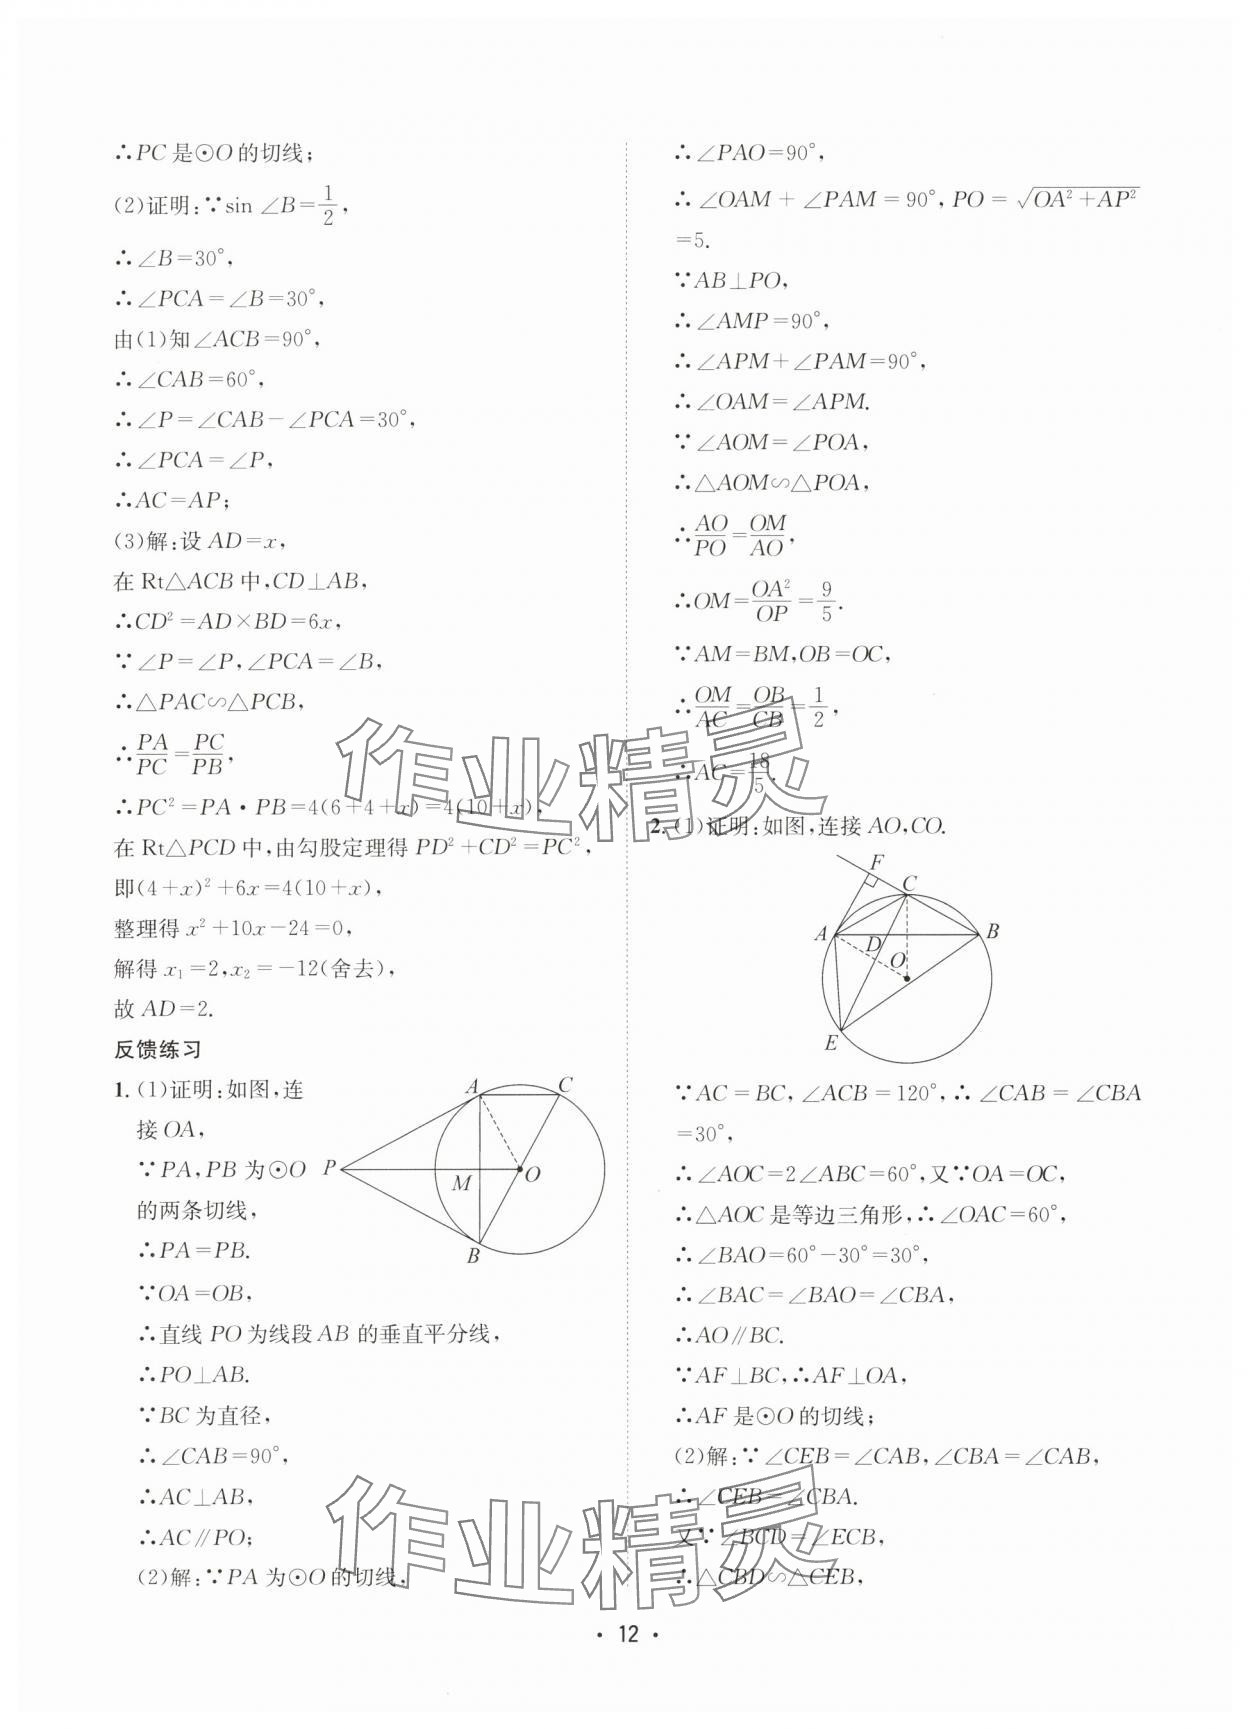 ∴PC是⊙O的切线;
(2)证明:∵sin ∠B=1/2,
∴∠B=30°,
∴∠PCA=∠B=30°,
由(1)知∠ACB=90°,
∴∠CAB=60°,
∴∠P=∠CAB-∠PCA=30°,
∴∠PCA=∠P,
∴AC=AP;
(3)解:设AD=x,
在Rt△ACB中,CD⊥AB,
∴CD²=AD×BD=6x,
∵∠P=∠P,∠PCA=∠B,
∴△PAC∽△PCB,
∴PA/PC=PC/PB,
∴PC²=PA·PB=4(6+4+x)=4(10+x),
在Rt△PCD中,由勾股定理得PD²+CD²=PC²,
即(4+x)²+6x=4(10+x),
整理得x²+10x-24=0,
解得x₁=2,x₂=-12(舍去),
故AD=2.
反馈练习
1.(1)证明:如图,连
接OA,
∵PA,PB为⊙O
的两条切线,
∴PA=PB.
∵OA=OB,
∴直线PO为线段AB的垂直平分线,
∴PO⊥AB.
∵BC为直径,
∴∠CAB=90°,
∴AC⊥AB,
∴AC∥PO;
(2)解:∵PA为⊙O的切线,
A
C
P
M
O
B
∴∠PAO=90°,
∴∠OAM+∠PAM=90°,PO=√(OA²+AP²)
=5.
∵AB⊥PO,
∴∠AMP=90°,
∴∠APM+∠PAM=90°,
∴∠OAM=∠APM.
∵∠AOM=∠POA,
∴△AOM∽△POA,
∴AO/PO=OM/AO,
∴OM=OA²/OP=9/5.
∵AM=BM,OB=OC,
∴OM/AC=OB/CB=1/2,
∴AC=18/5.
2.(1)证明:如图,连接AO,CO.
F
C
A
D
B
O
E
∵AC=BC,∠ACB=120°,∴∠CAB=∠CBA
=30°,
∴∠AOC=2∠ABC=60°,又∵OA=OC,
∴△AOC是等边三角形,∴∠OAC=60°,
∴∠BAO=60°-30°=30°,
∴∠BAC=∠BAO=∠CBA,
∴AO∥BC.
∵AF⊥BC,∴AF⊥OA,
∴AF是⊙O的切线;
(2)解:∵∠CEB=∠CAB,∠CBA=∠CAB,
∴∠CEB=∠CBA.
又∵∠BCD=∠ECB,
∴△CBD∽△CEB,
作业精灵
作业精灵
·12·